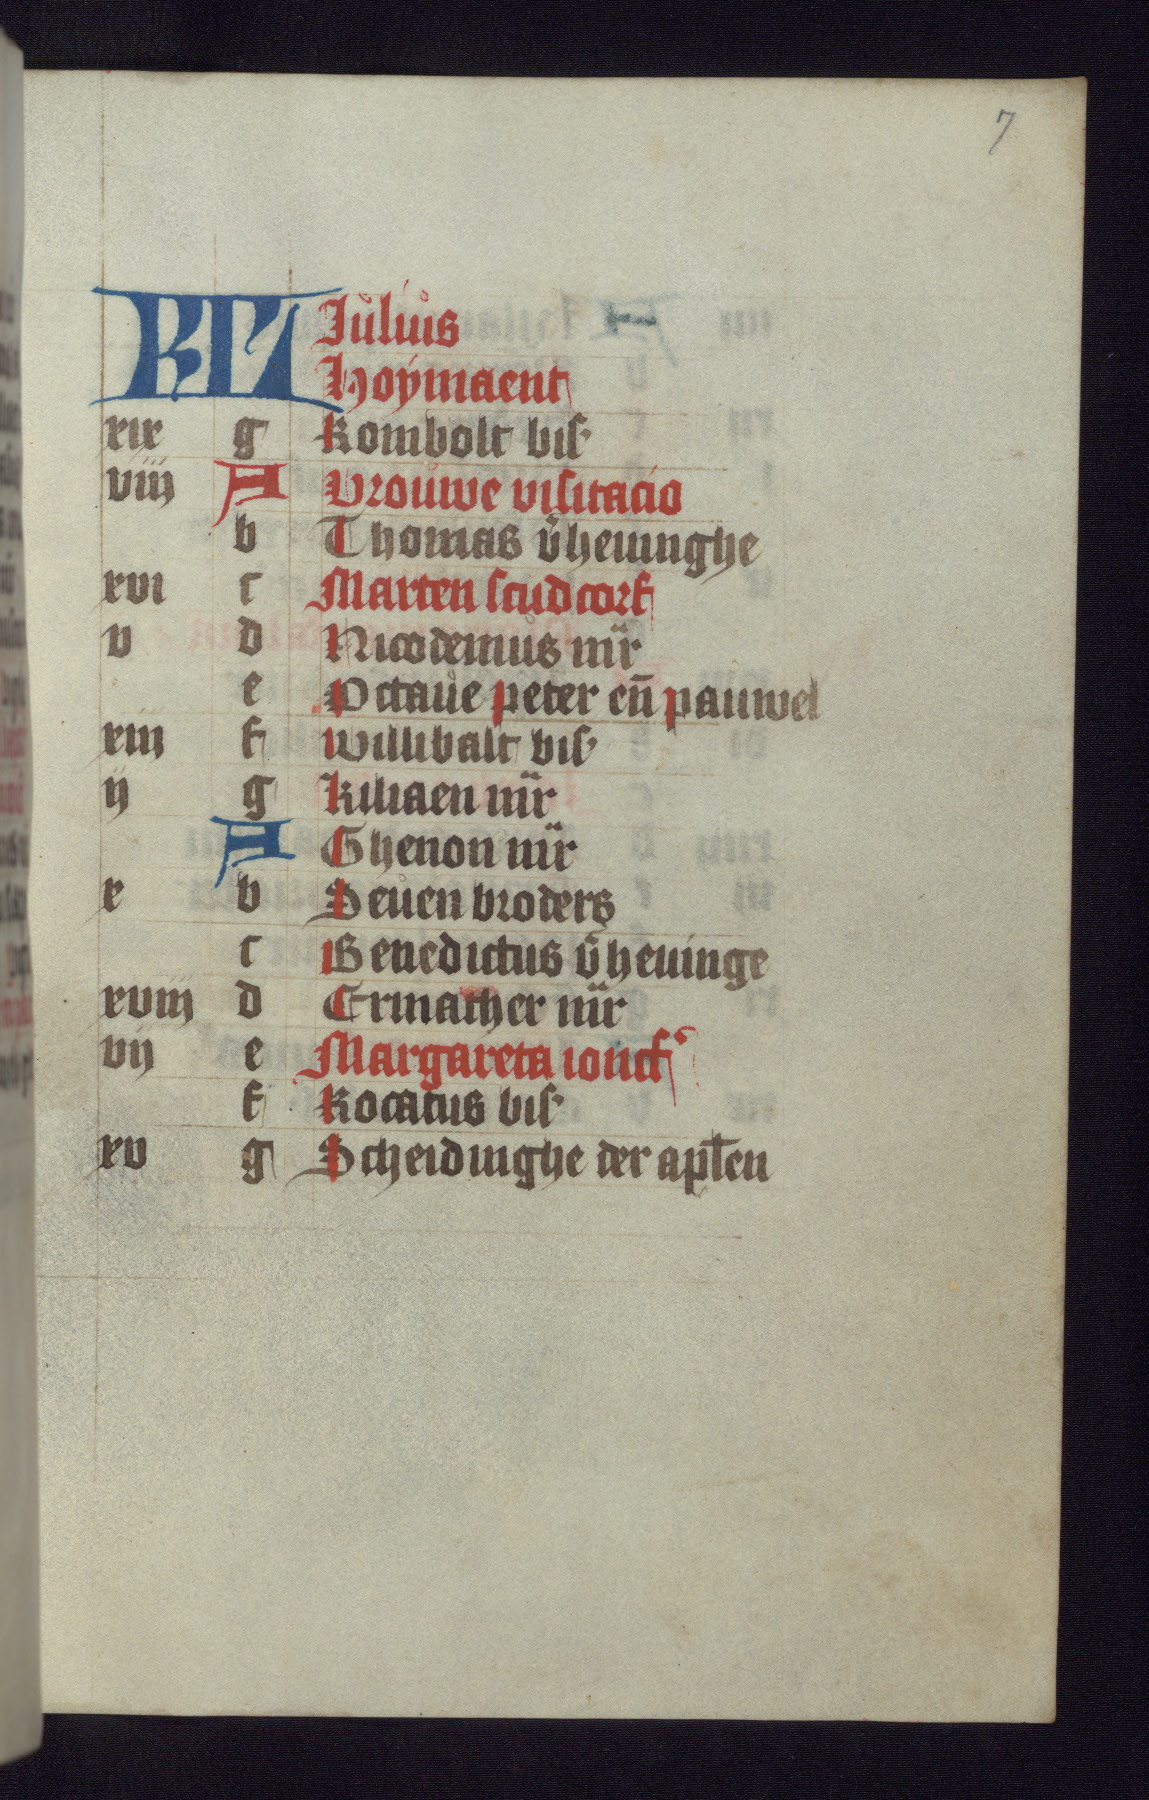 7
KL Iulius
Hoÿmaent
xix g Rombolt bis
viii A Vrouwe visitacio
b Thomas v̄heuinghe
xvi c Marten scudcorf
v d Nicodemus m̄r
e Octaue peter en̄ pauwel
xiii f Willibalt bis
ij g Kiliaen m̄r
A Ghenon m̄r
x b Seuen broders
c Benedictus v̄heuinge
xviii d Ermacher m̄r
vij e Margareta ioncf
f Focatus bis
xv g Scheidinghe der aptēn